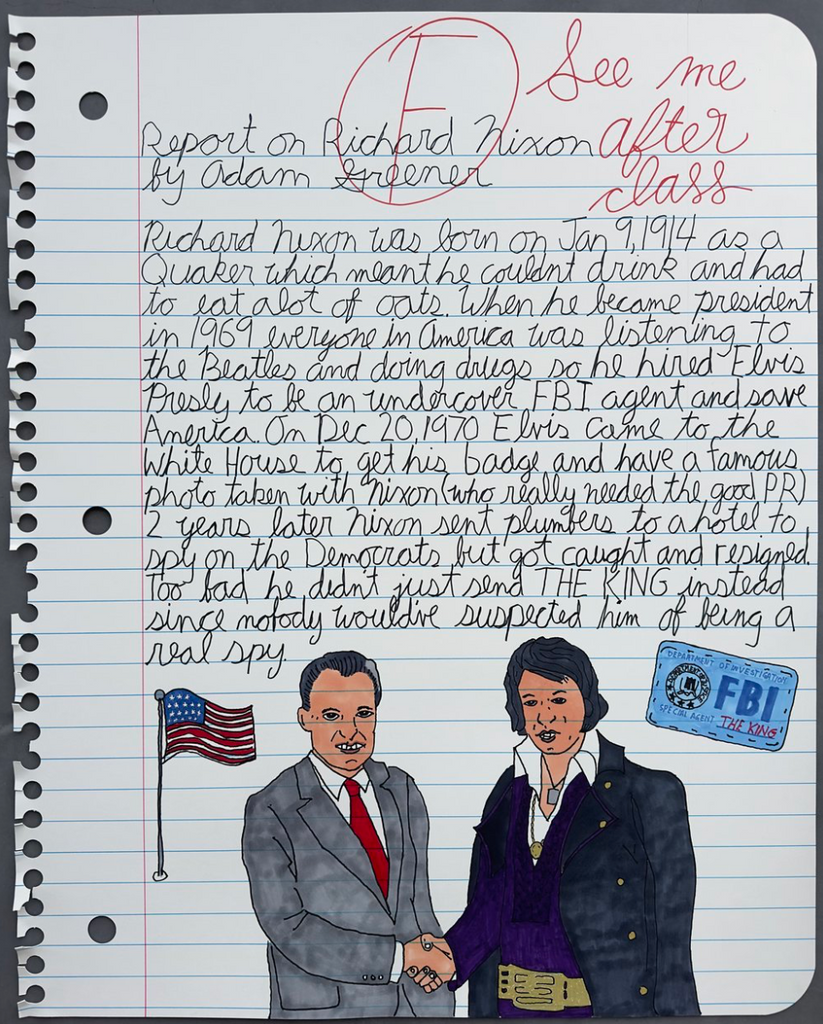 F
See me
after
class
Report on Richard Nixon
by Adam Greener
Richard Nixon was born on Jan 9, 1914 as a
Quaker which meant he couldnt drink and had
to eat alot of oats. When he became president
in 1969 everyone in America was listening to
the Beatles and doing drugs so he hired Elvis
Presly to be an undercover FBI agent and save
America. On Dec 20, 1970 Elvis came to the
White House to get his badge and have a famous
photo taken with Nixon (who really needed the good PR)
2 years later Nixon sent plumbers to a hotel to
spy on the Democrats but got caught and resigned.
Too bad he didn't just send THE KING instead
since nobody would've suspected him of being a
real spy.
DEPARTMENT OF INVESTIGATION
FBI
SPECIAL AGENT THE KING